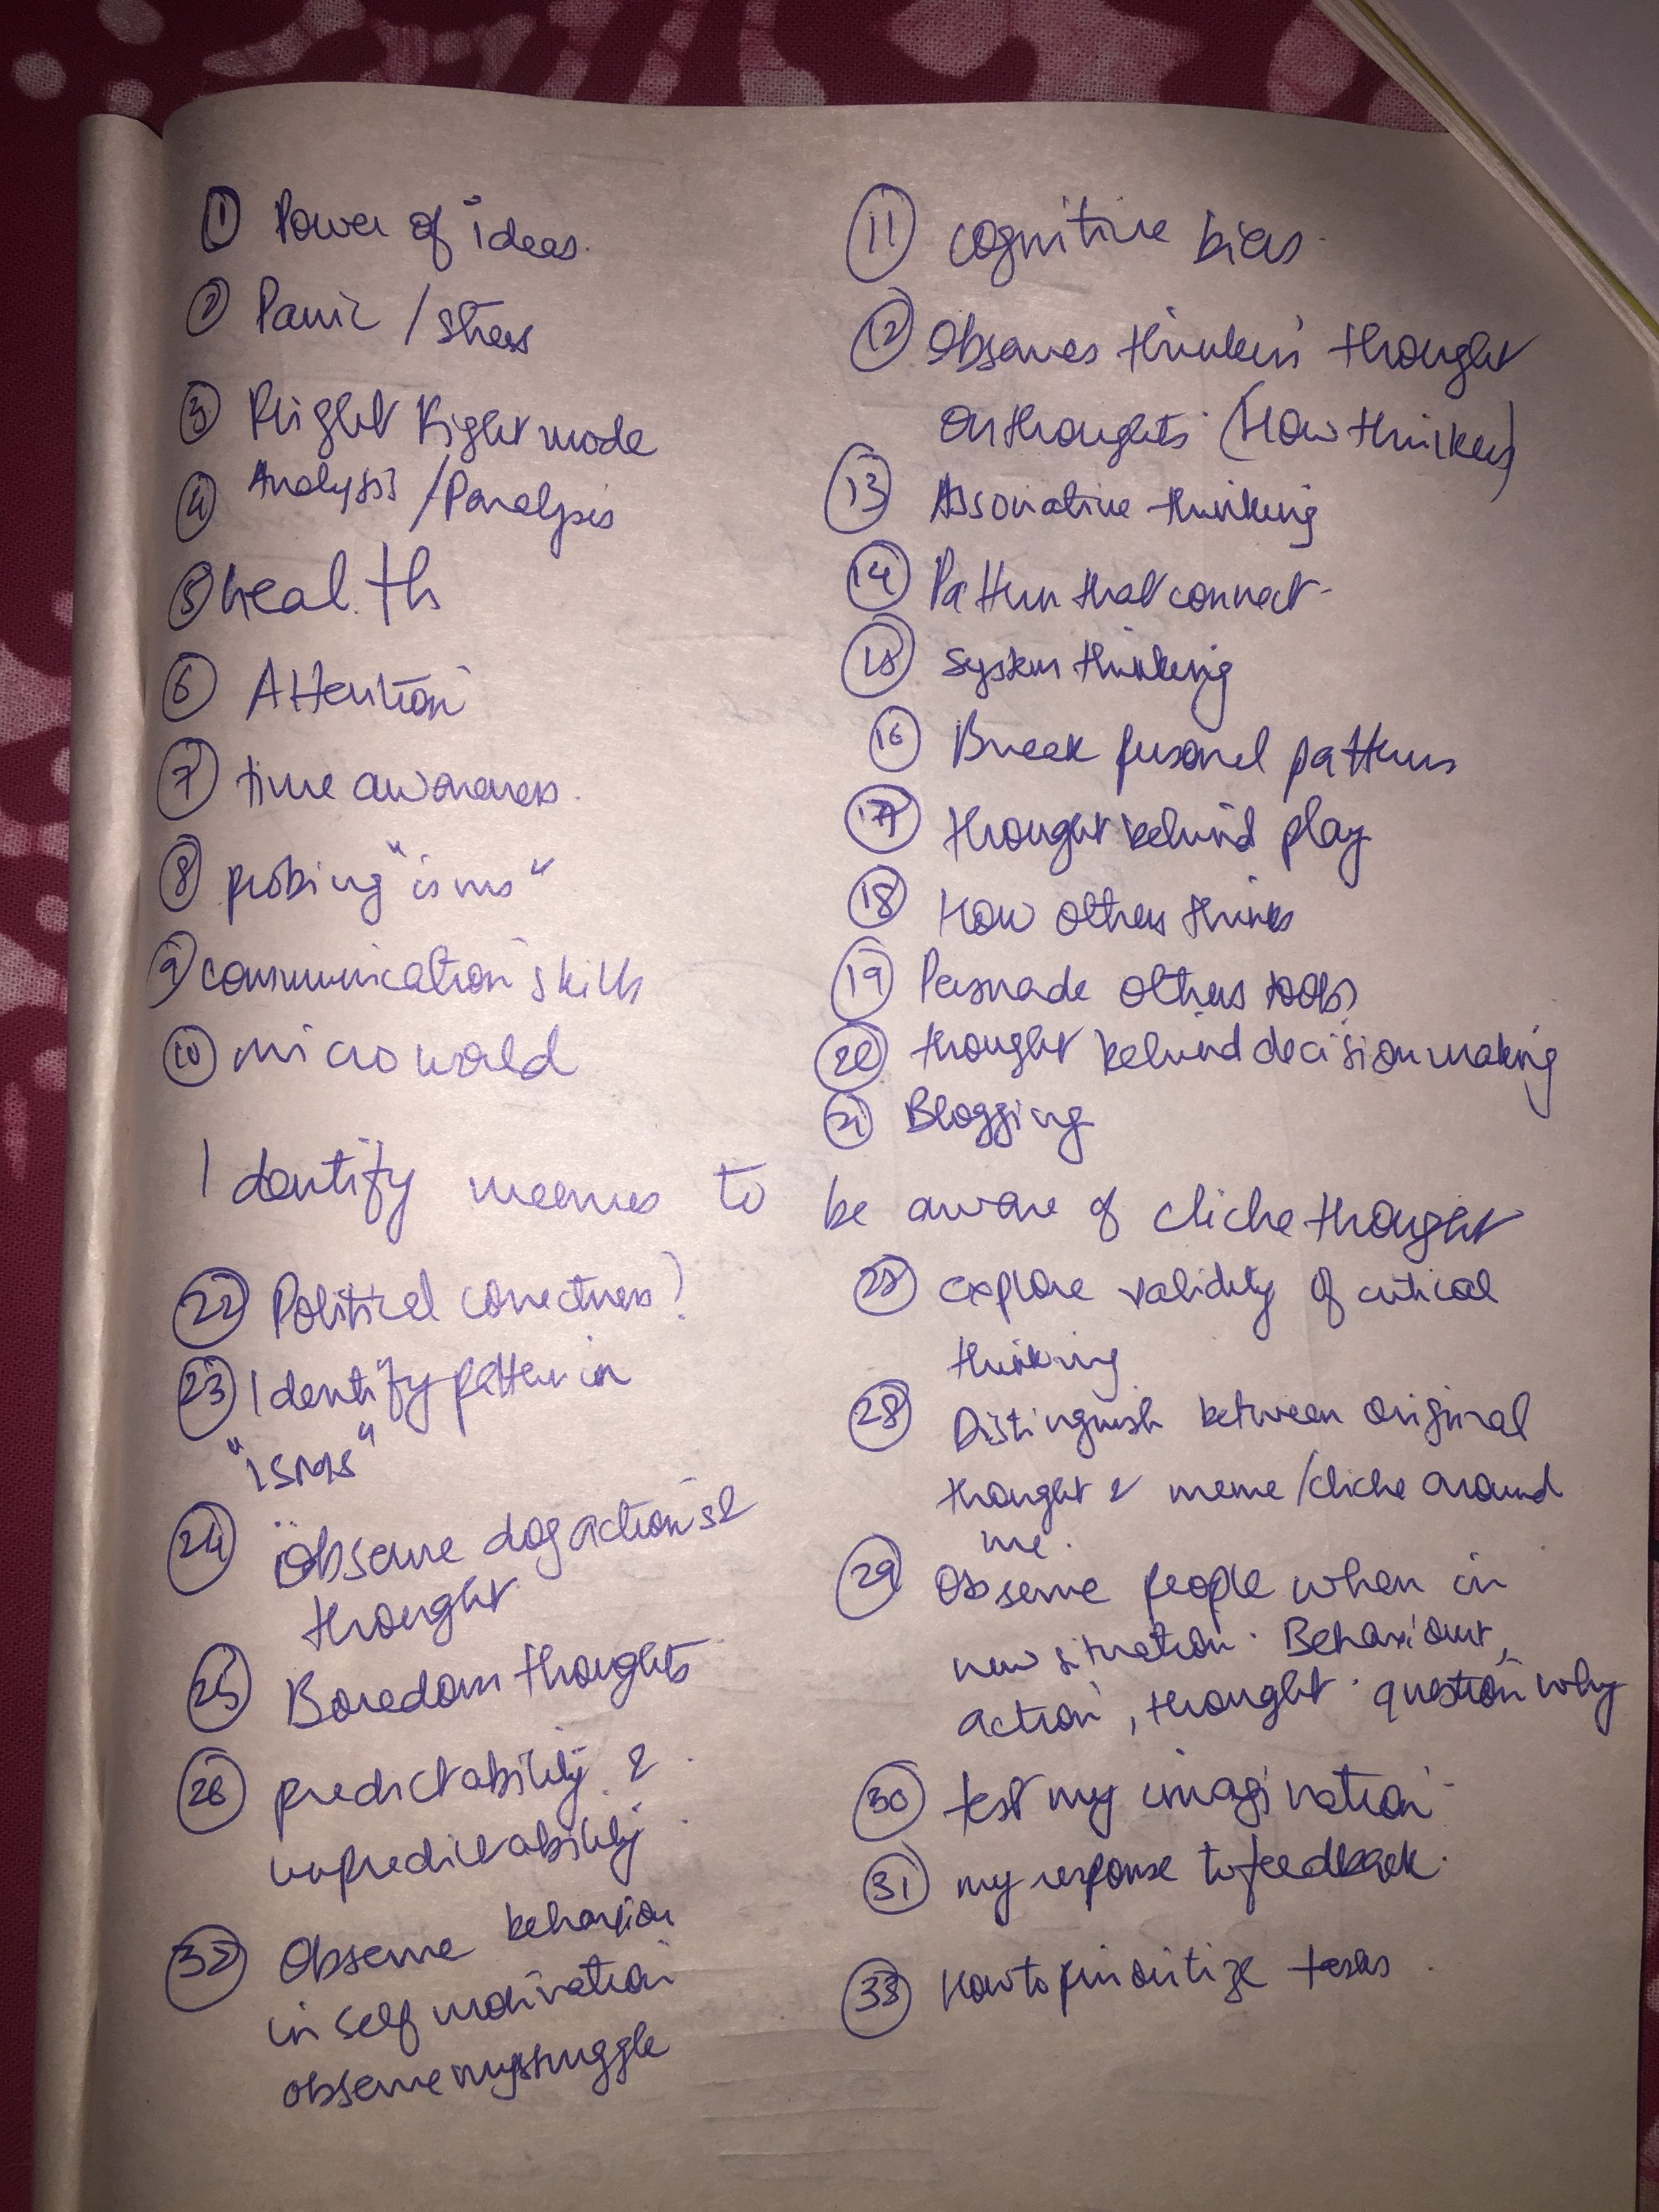 ① Power of ideas.
② Panic / stress
③ Flight Fight mode
④ Analysis / Paralysis
⑤ health
⑥ Attention
⑦ time awareness.
⑧ probing "isms"
⑨ communication skills
⑩ micro world
⑪ cognitive bias.
⑫ Observes thinkers' thought
on thoughts (How thinkers)
⑬ Associative thinking
⑭ Pattern that connect.
⑮ System thinking
⑯ Break personal patterns
⑰ thought behind play
⑱ How others thinks
⑲ Persuade others tools
⑳ thought behind decision making
㉑ Blogging
Identify memes to be aware of cliche thought
㉒ Political correctness?
㉓ Identify pattern in
"isms"
㉔ Observe dog action's &
thought
㉕ Boredom thoughts
㉖ predictability &
unpredictability
㉜ Observe behavior
in self motivation
observe my struggle
㉗ explore validity of critical
thinking
㉘ Distinguish between original
thought & meme/cliche around
me.
㉙ Observe people when in
new situation. Behaviour,
action, thought. question why
㉚ test my imagination
㉛ my response to feedback.
㉝ How to prioritize tasks.